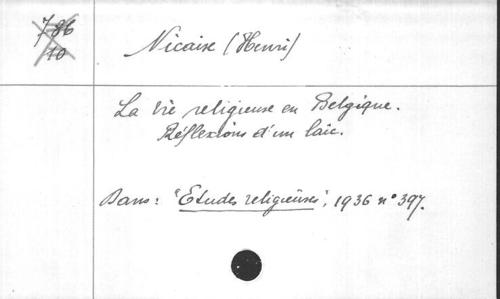 786
10
Nicaise (Henri)
La Vie religieuse en Belgique.
Réflexions d'un laïc.
Dans: "Etudes religieuses", 1936 n° 397.